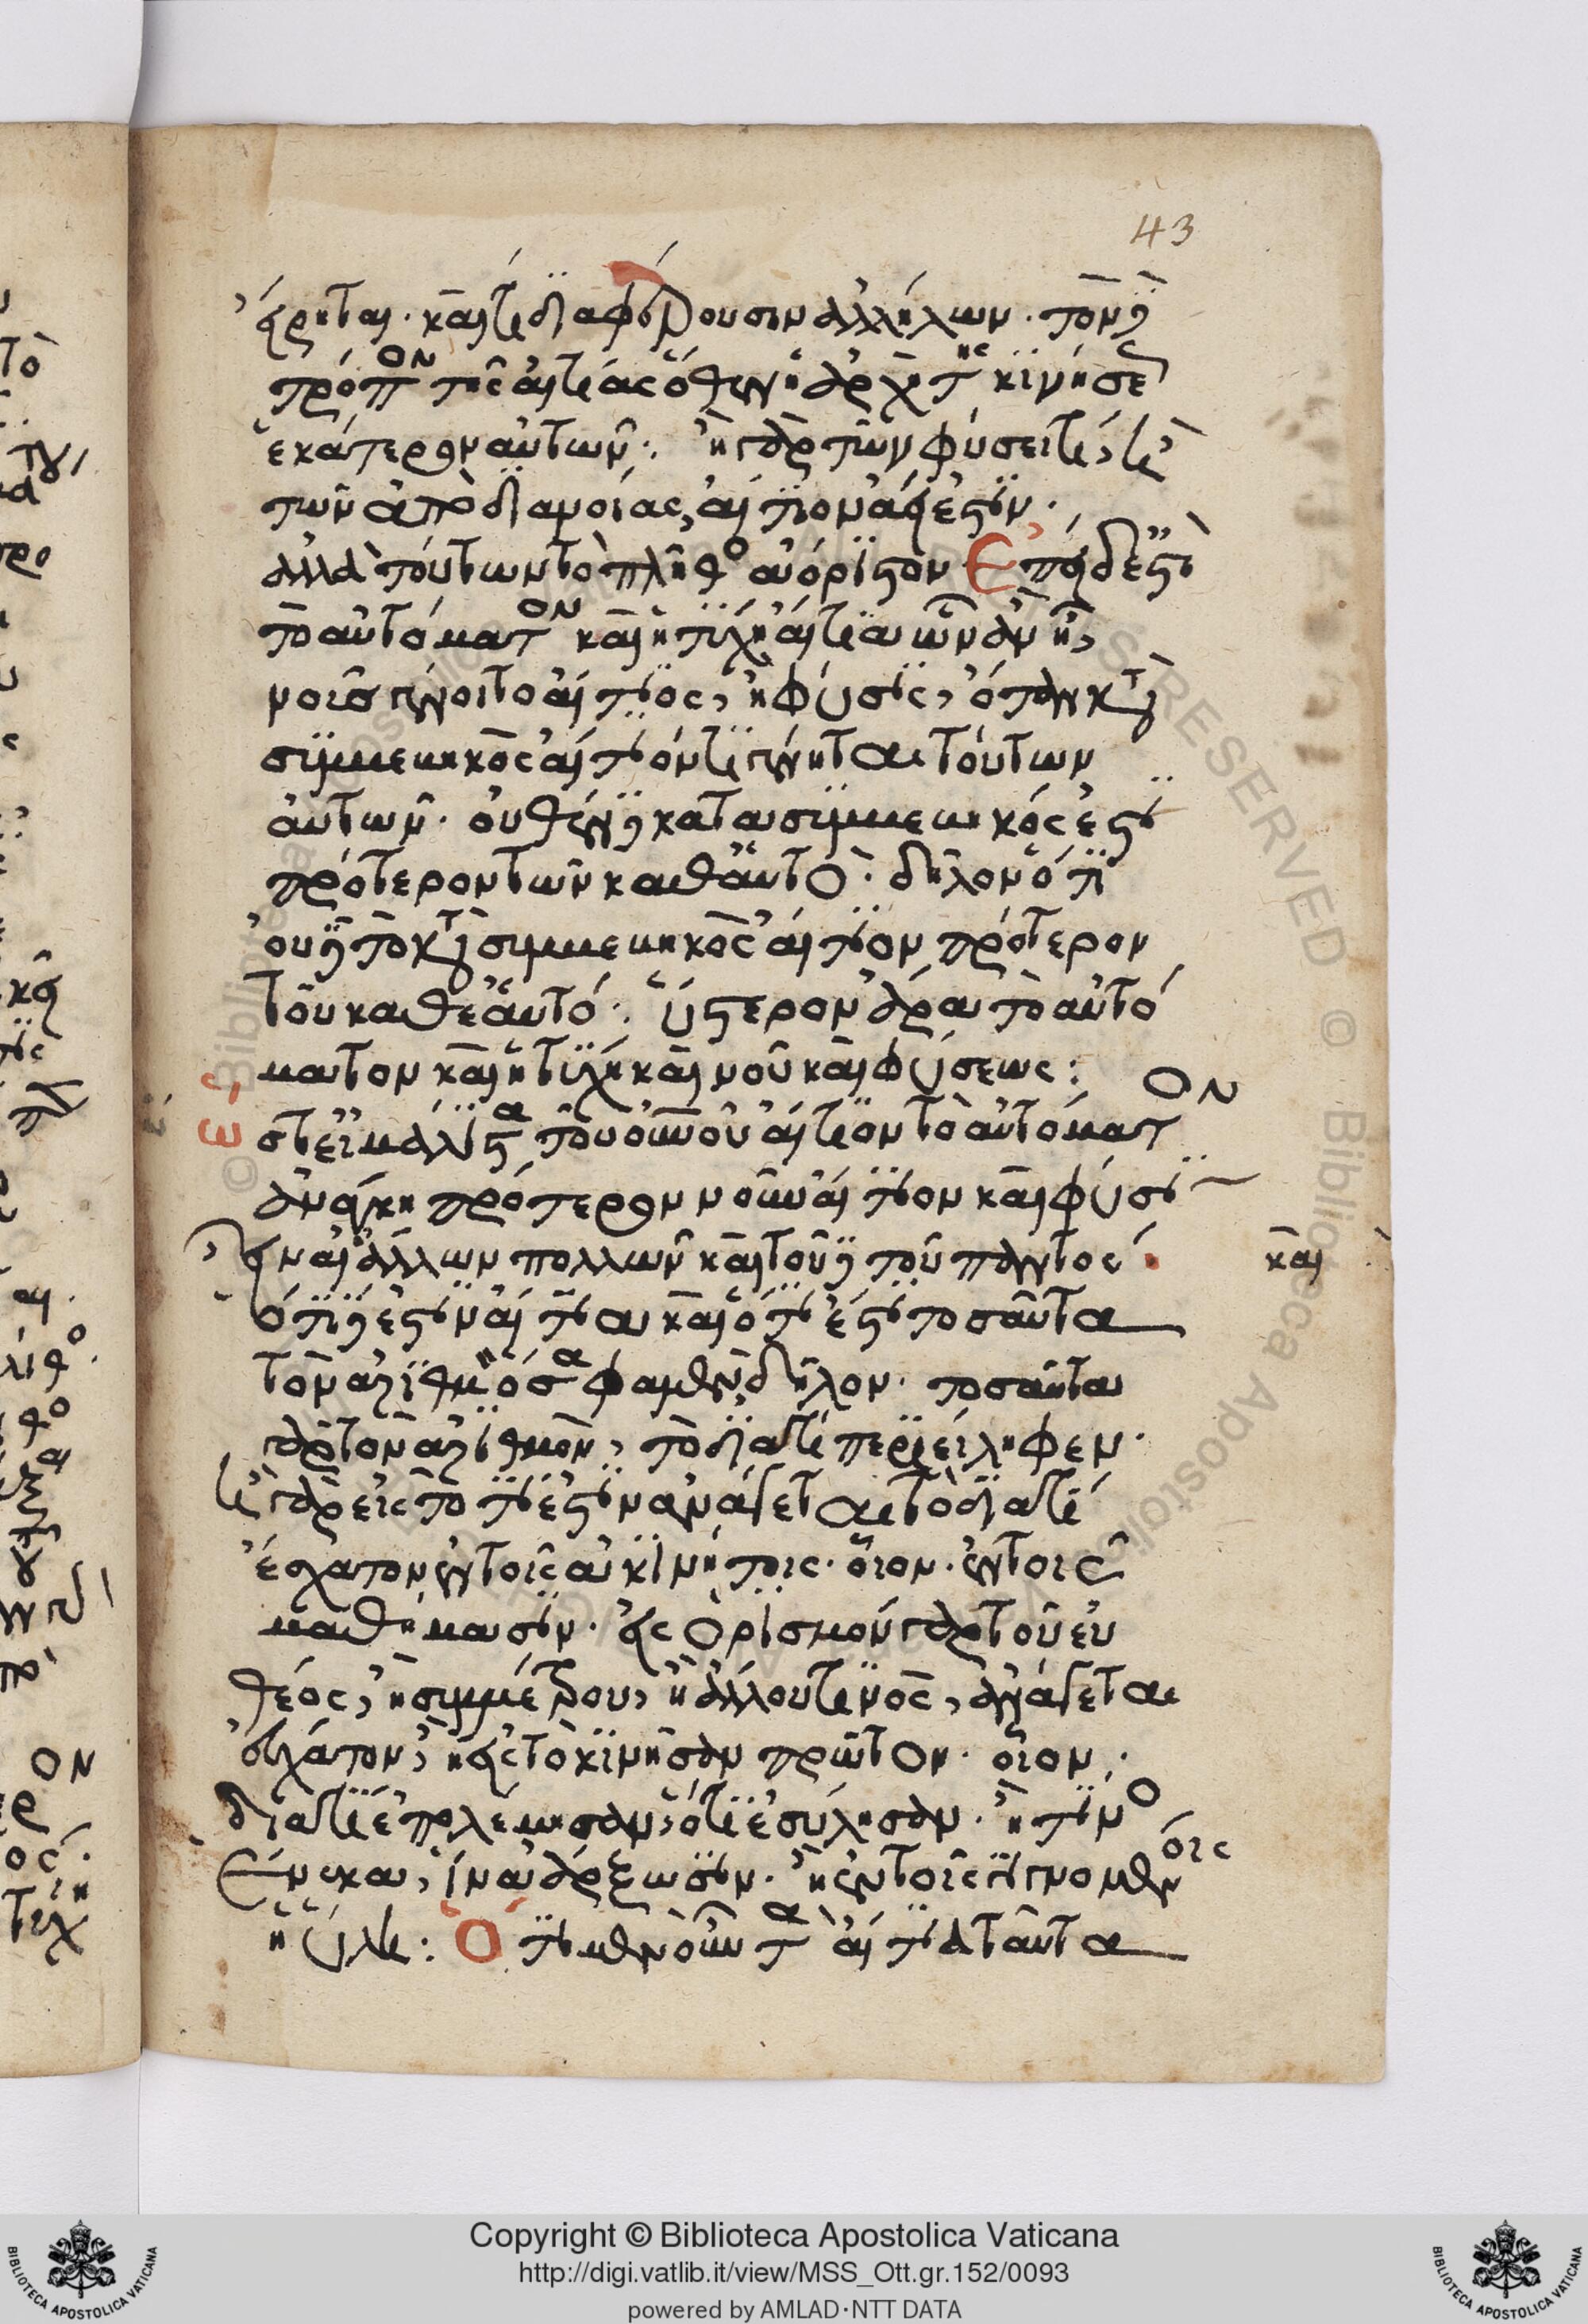 43
εἴρηται. καὶ τί διαφέρουσιν ἀλλήλων. τὸν δὲ
τρόπον τῆς αἰτίας ὅθεν ἡ ἀρχὴ τῆς κινήσεως
ἑκάτερον αὐτῶν: ἢ γὰρ τῶν φύσει τί, ἢ
τῶν ἀπὸ διανοίας, αἴτιον ἀεί ἐστιν.
ἀλλὰ τούτων τὸ πλῆθος ἀόριστον. Ἐπεὶ δέ ἐστι
τὸ αὐτόματον καὶ ἡ τύχη αἴτια ὧν ἂν ἢ,
νοῦς γένοιτο αἴτιος, ἢ φύσις, ὅταν κατὰ
συμβεβηκὸς αἴτιόν τι γένηται τούτων
αὐτῶν. οὐθὲν δὲ κατὰ συμβεβηκός ἐστι
πρότερον τῶν καθ' αὑτό: δῆλον ὅτι
οὐδὲ τὸ κατὰ συμβεβηκὸς αἴτιον πρότερον
τοῦ καθ' ἑαυτό: ὕστερον ἄρα τὸ αὐτό
ματον καὶ ἡ τύχη καὶ νοῦ καὶ φύσεως:
ὥστ' εἰ μάλιστα τοῦ οὐρανοῦ αἴτιον τὸ αὐτόματον
ἀνάγκη πρότερον νοῦν αἴτιον καὶ φύσιν
εἶναι ἄλλων πολλῶν καὶ τοῦδε τοῦ παντός.
καὶ
ὅτι δέ ἐστιν αἴτια καὶ ὅτι ἐστὶ τοσαῦτα
τὸν ἀριθμὸν ὅσα φαμὲν δῆλον. τοσαῦτα
γὰρ τὸν ἀριθμὸν, τὸ διατί περιείληφεν.
ἢ γὰρ εἰς τὸ τί ἐστιν ἀνάγεται τὸ διατί
ἔσχατον ἐν τοῖς ἀκινήτοις. οἷον. ἐν τοῖς
μαθήμασιν. εἰς ὁρισμὸν γὰρ τοῦ εὐ
θέος, ἢ συμμέτρου, ἢ ἄλλου τινὸς, ἀνάγεται
ἔσχατον, ἢ εἰς τὸ κινῆσαν πρῶτον. οἷον,
διατί ἐπολέμησαν, ὅτι ἐσύλησαν. ἢ τίνος
ἕνεκα, ἵνα ἄρξωσιν. ἢ ἐν τοῖς γινομένοις
ἡ ὕλη: Ὅτι μὲν οὖν τὰ αἴτια ταῦτα
Copyright © Biblioteca Apostolica Vaticana
http://digi.vatlib.it/view/MSS_Ott.gr.152/0093
powered by AMLAD·NTT DATA